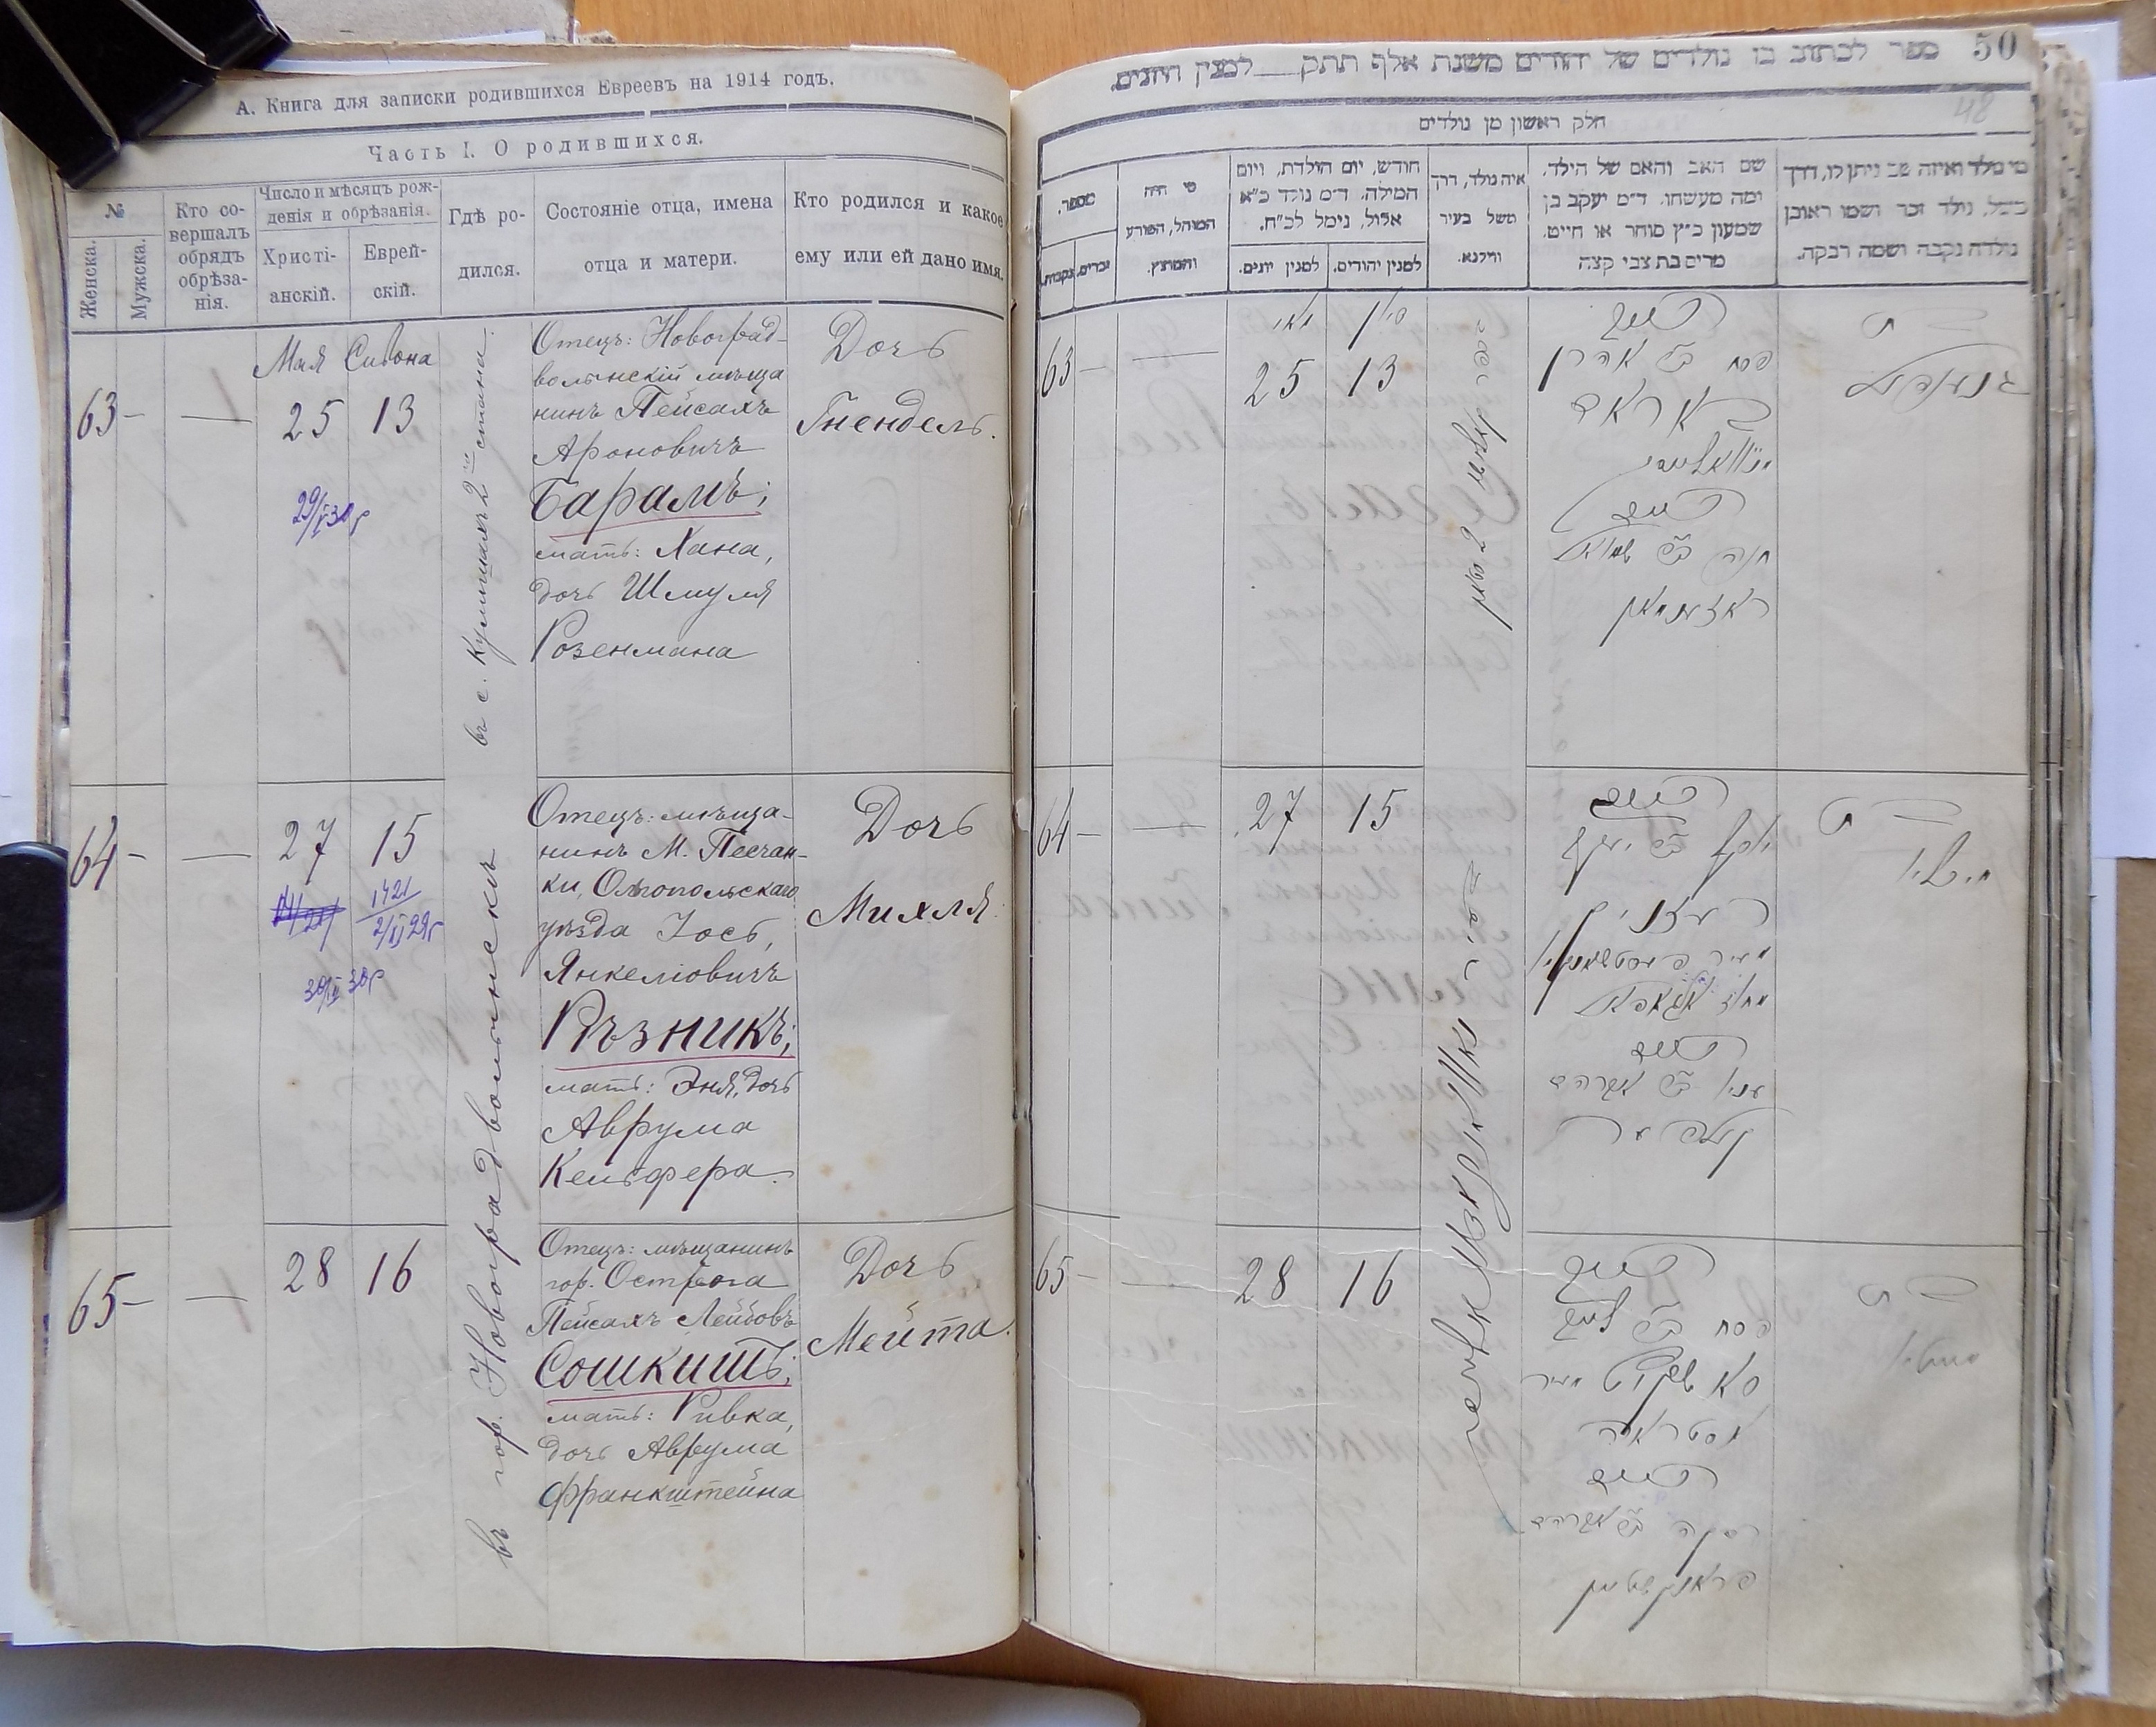 А. Книга для записки родившихся Евреевъ на 1914 годъ.
Часть I. О родившихся.
№
Женска.
Мужска.
Кто со-
вершалъ
обрядъ
обрѣза-
нія.
Число и мѣсяцъ рож-
денія и обрѣзанія.
Христі-
анскій.
Еврей-
скій.
Гдѣ ро-
дился.
Состояніе отца, имена
отца и матери.
Кто родился и какое
ему или ей дано имя.
63 —
—
Мая Сивона
25 13
Отецъ: Новоград-
волынскій мѣща
нинъ Пейсахъ
Ароновичъ
Барамъ;
мать: Хана,
дочь Шмуля
Розенмана
Дочь
Гнендель.
64 —
—
27 15
1421
Отецъ: мѣща-
нинъ М. Песчан-
ки, Ольгопольскаго
уѣзда Іось,
Янкеліовичъ
Рѣзникъ;
мать: Эня, дочь
Аврума
Кельфера.
Дочь
Михля
въ гор. Новоградволынскѣ
65 —
—
28 16
Отецъ: мѣщанинъ
гор. Острога
Пейсахъ Лейбовъ
Сошкитъ;
мать: Ривка,
дочь Аврума
Франкштейна
Дочь
Мейта.
50
ספר לכתוב בו נולדים של יהודים משנת אלף תתק למנין היונים.
48
חלק ראשון מן נולדים
מספר.
זכרים.
נקבות.
מי היה
המוהל, הפורע
והמוצץ.
חודש, יום הולדת, ויום
המילה. ד״מ נולד כ״א
אלול, נימל לכ״ח.
למנין יהודים.
למנין יונים.
איה נולד, דרך
משל בעיר
ווילנא.
שם האב והאם של הילד,
ומה מעשהו. ד״מ יעקב בן
שמעון כ״ץ סוחר או חייט.
מרים בת צבי קצה
מי נולד ואיזה שם ניתן לו, דרך
משל, נולד זכר ושמו ראובן
נולדה נקבה ושמה רבקה.
63 —
—
מאי סיון
25 13
פסח ב״ר אהרן
באראם
חנה ב״ר שמואל
ראזענמאן
גנענדיל
64 —
—
27 15
יוסף ב״ר יעקב
רעזניק
עניא ב״ר אברהם
קעלפער
מיכליא
65 —
—
28 16
פסח ב״ר לייב
סאשקיט מעיר
אסטראה
רבקה ב״ר אברהם
פראנקשטיין
מייטא